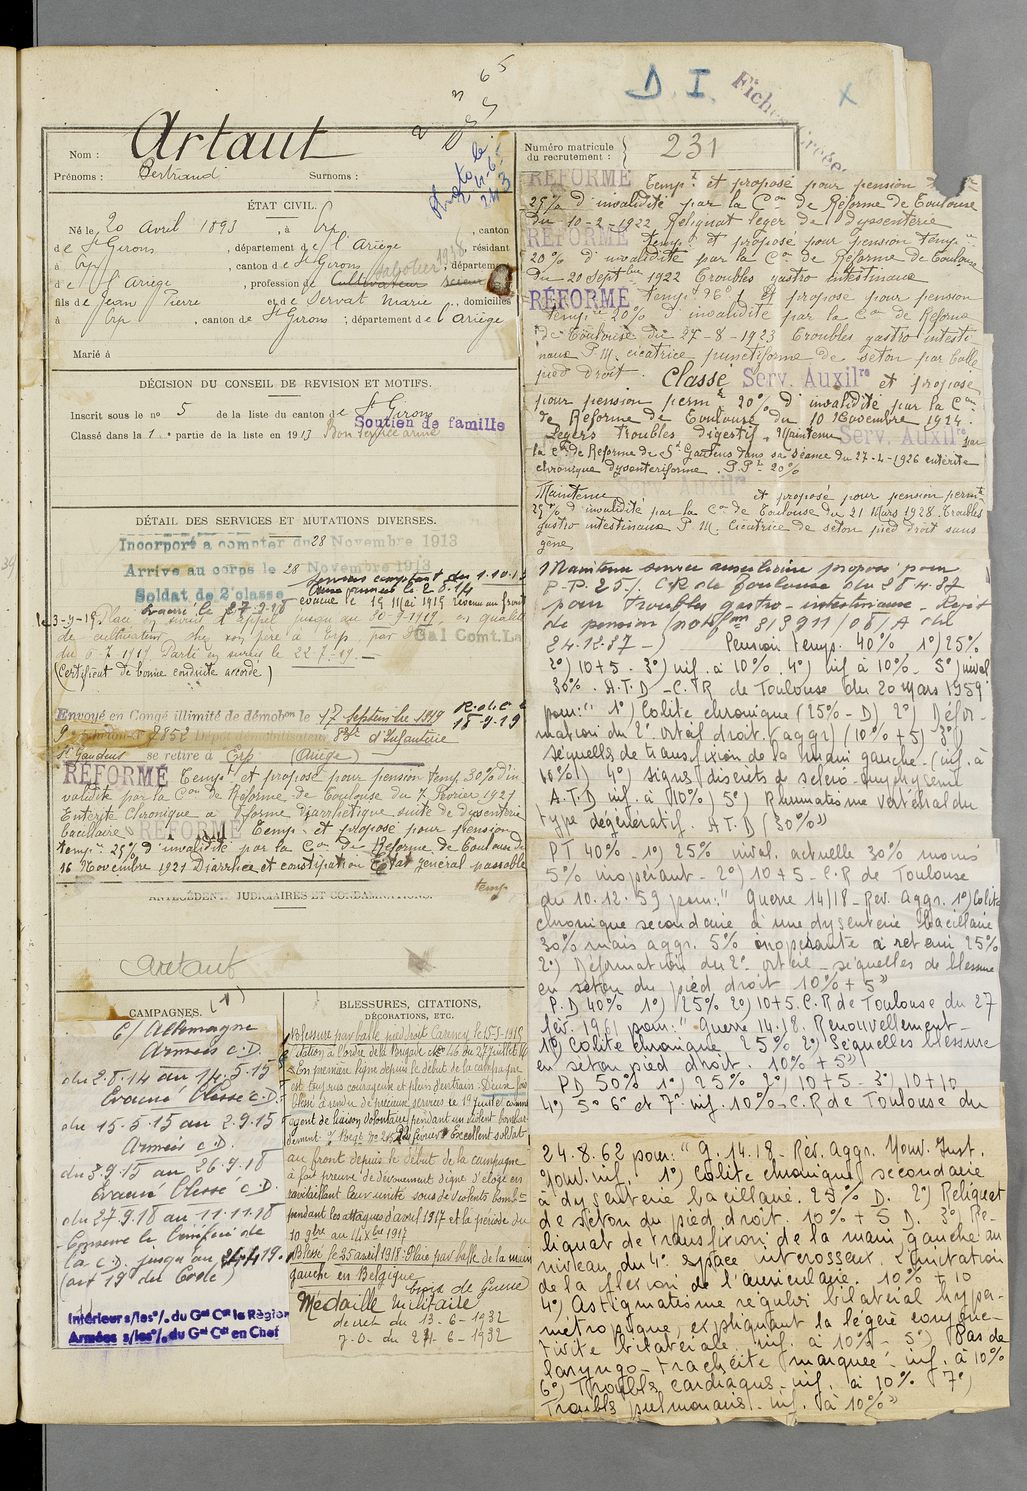 D. I.
Fiches
X
Nom : Artaut
Prénoms : Bertrand Surnoms :
Numéro matricule
du recrutement : 231
ÉTAT CIVIL.
Né le 20 Avril 1893, à Erp, canton
de St Girons, département de l'Ariège, résidant
à Erp, canton de St Girons, département
d e l'Ariège, profession de Cultivateur
fils de Jean Pierre et de Servat Marie, domiciliés
à Erp, canton de St Girons ; département de l'Ariège
Marié à
DÉCISION DU CONSEIL DE REVISION ET MOTIFS.
Inscrit sous le no 5 de la liste du canton de St Girons
Soutien de famille
Classé dans la 1e partie de la liste en 1913 Bon service armé
DÉTAIL DES SERVICES ET MUTATIONS DIVERSES.
Incorporé à compter du 28 Novembre 1913
Arrivé au corps le 28 Novembre 1913
Soldat de 2e classe
évacué le 15 Mai 1915 revenu au front
le 3-9-15 évacué le 27-9-18
de cultivateur chez son père à Erp, par Gal Comt. La
du 6-7-1919 Parti en sursis le 22-7-19. —
(Certificat de bonne conduite accordé)
Envoyé en Congé illimité de démobon le 17 Septembre 1919
Dépôt démobilisateur d'Infanterie
St Gaudens se retire à Erp (Ariège)
RÉFORMÉ Tempt et proposé pour pension temp. 30% d'in
validité par la Con de Réforme de Toulouse du 7 Février 1921
Entérite Chronique à forme diarrhéique suite de dysenterie
bacillaire RÉFORMÉ Temp. et proposé pour pension
temp. 25% d'invalidité par la Con de Réforme de Toulouse du
16 Novembre 1921 Diarrhée et constipation Etat général passable
temp
ANTÉCÉDENTS JUDICIAIRES ET CONDAMNATIONS.
Artaut
CAMPAGNES. (1)
C/ Allemagne
Armées C.D.
du 2.8.14 au 14.5.15
Evacué blessé C.D.
du 15.5.15 au 2.9.15
Armées C.D.
du 3.9.15 au 26.9.18
Evacué blessé C.D.
du 27.9.18 au 11.11.18
Conserve le bénéfice de
la C.D. jusqu'au
(art 19 du Code)
Intérieur s/les o/. du Gal Ct la Région
Armées s/les o/. du Gal Ct en Chef
BLESSURES, CITATIONS,
DÉCORATIONS, ETC.
Blessure par balle pied droit Carency le 15-5-1915
Citation à l'ordre de la Brigade No 146 du 27 Juillet 16
"En première ligne depuis le début de la campagne
est toujours courageux et plein d'entrain. Deux fois
blessé a rendu de précieux services le 19 Juillet comme
agent de liaison volontaire pendant un violent bombar-
dement. Excellent soldat
au front depuis le début de la campagne
a fait preuve de dévouement digne d'éloge en
ravitaillant leur unité sous de violents bombts
pendant les attaques d'avril 1917 et la période du
10 9bre au 14 Xbre 1917
Blessé le 25 avril 1918 : Plaie par balle de la main
gauche en Belgique
Croix de Guerre
Médaille Militaire
décret du 13-6-1932
J.O. du 24-6-1932
RÉFORMÉ Tempt et proposé pour pension
25% d'invalidité par la Con de Réforme de Toulouse
du 10-2-1922 Reliquat léger de dysenterie
RÉFORMÉ temp. et proposé pour pension temp.
20% d'invalidité par la Con de Réforme de Toulouse
du 20 Septbre 1922 Troubles gastro intestinaux
RÉFORMÉ et proposé pour pension
tempre 20% d'invalidité par la Con de Réforme
de Toulouse du 27-8-1923 Troubles gastro intesti
naux P.M. cicatrice punctiforme de séton par balle
pied droit. Classé Serv. Auxilre et proposé
pour pension permte 20% d'invalidité par la Con
de Réforme de Toulouse du 10 Novembre 1924.
Légers troubles digestifs, Maintenu Serv. Auxilre par
la Con de Réforme de St Gaudens dans sa séance du 27-4-1926 entérite
chronique dysentériforme. P.Pt 20%
Maintenu et proposé pour pension permte
25% d'invalidité par la Con de Toulouse du 21 Mars 1928. Troubles
gastro intestinaux P.M. Cicatrice de séton pied droit sans
gêne.
Maintenu service auxiliaire proposé pour
P.P. 25%. C.R. de Toulouse du 28.4.37
pour troubles gastro-intestinaux - Rejet
de pension
24.12.37 -) Pension temp. 40%, 1°) 25%
2°) 10+5. 3°) inf. à 10%. 4°) inf à 10%. 5°) nival
30%. A.T.D - C.R de Toulouse du 20 mars 1959
pour: " 1°) Colite chronique (25% - D) 2°) Défor-
mation du 2e orteil droit. (aggr) (10% + 5) - 3°)
séquelles de transfixion de la main gauche. (inf. à
10%) 4°) signes discrets de scléro-emphysème
A.T.D inf. à 10%) 5°) Rhumatisme vertébral du
type dégénératif. A.T.D (30%)"
PT 40% - 1°) 25% nival. actuelle 30% moins
5% inopérant - 2°) 10+5 - C.R de Toulouse
du 10.12.59 pour: " Guerre 14/18 - Rév. Aggr. 1°) Colite
chronique secondaire à une dysenterie bacillaire
30% mais aggr. 5% inopérante à retenir 25%
2°) Déformation du 2e orteil - séquelles de blessure
en séton du pied droit 10% + 5"
P.D 40% 1°) 25% 2°) 10+5. C.R de Toulouse du 27
fév. 1961 pour: " Guerre 14.18. Renouvellement -
1°) Colite chronique 25% 2°) Séquelles blessure
en séton pied droit. 10% + 5")
PD 50% 1°) 25% 2°) 10+5 - 3°) 10+10
4°) 5° 6° et 7° inf. 10% - C.R de Toulouse du
24.8.62 pour: " G. 14.18 - Rév. Aggr. Nouv. Inst.
Nouv. inf. 1°) Colite chronique secondaire
à dysenterie bacillaire. 25% D. 2°) Reliquat
de séton du pied droit. 10% + 5 D. 3°) Re-
liquat de transfixion de la main gauche au
niveau du 4e espace interosseux. Limitation
de la flexion de l'auriculaire. 10% + 10
4°) Astigmatisme régulier bilatéral hyper-
métropique, expliquant la légère conjonc-
tivite bilatérale. inf. à 10% - 5°) Pas de
laryngo-trachéite marquée. inf. à 10%
6°) Troubles cardiaques. inf. à 10% 7°)
Troubles pulmonaires. inf. à 10%"